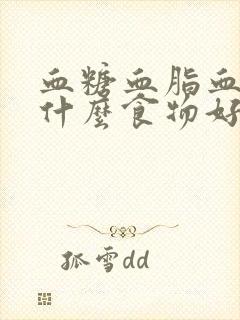 血糖血脂血
什麼食物好
孤雪dd